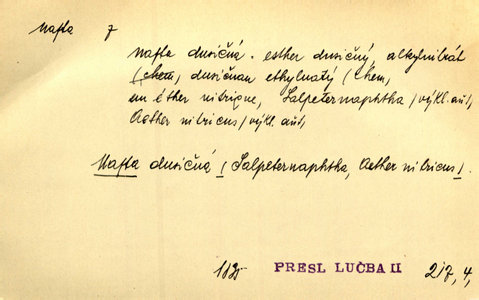 nafta f
nafta dusičná. esther dusičný, alkylnitrát
(chem, dusičnan ethylnatý (chem,
un éther nitrique, Salpeternaphtha / výkl. aut,
Aether nitricus / výkl. aut,
Nafta dusičná (Salpeternaphtha, Aether nitricus).
1835 PRESL LUČBA II 217, 4,